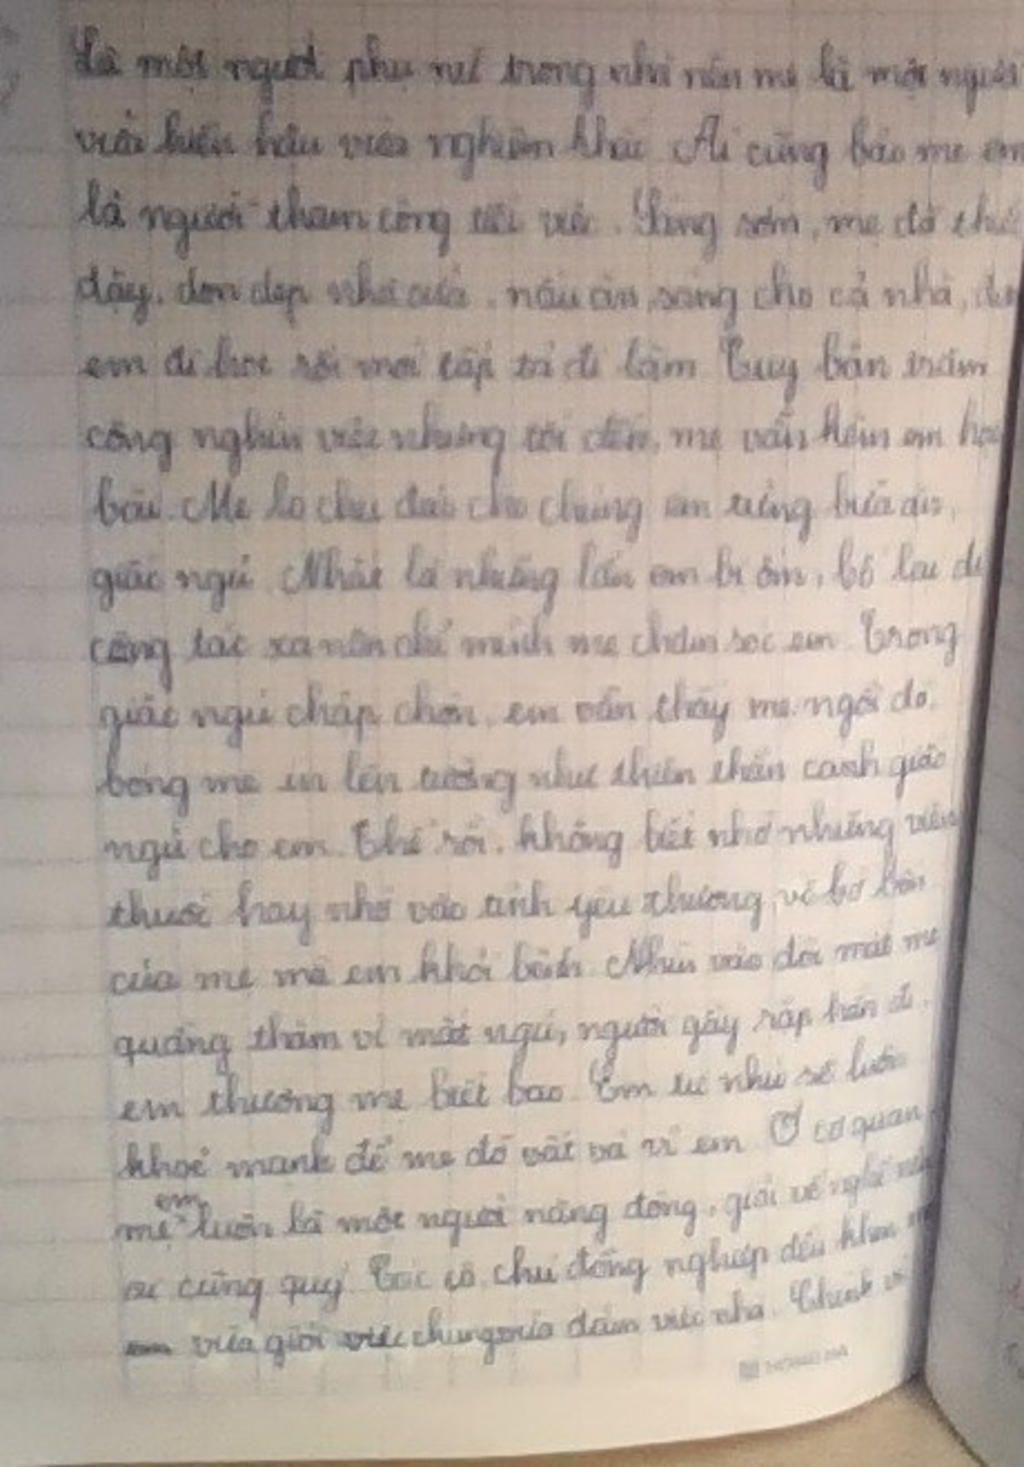 Là một người phụ nữ trong nhà nên mẹ là một người
vừa hiền hậu vừa nghiêm khắc Ai cũng bảo mẹ em
là người tham công tiếc việc. Sáng sớm, mẹ đã thức
dậy, dọn dẹp nhà cửa, nấu ăn sáng cho cả nhà,
em đi học rồi mới tấp tả đi làm Tuy bận trăm
công nghìn việc nhưng tối đến, mẹ vẫn kèm em học
bài. Mẹ lo chu đáo cho chúng em từng bữa ăn,
giấc ngủ Nhất là những lần em bị ốm, bố lại đi
công tác xa nên chỉ mình mẹ chăm sóc em Trong
giấc ngủ chập chờn, em vẫn thấy mẹ ngồi đó,
bóng mẹ in lên tường như thiên thần canh giấc
ngủ cho em. Thế rồi, không biết nhờ những viên
thuốc hay nhờ vào tình yêu thương, vô bờ bến
của mẹ mà em khỏi bệnh Nhìn vào đôi mắt mẹ
quầng thâm vì mất ngủ, người gầy rộp hẳn đi,
em thương mẹ biết bao Em tự nhủ sẽ luôn
khoẻ mạnh để mẹ đỡ vất vả vì em Ở cơ quan,
mẹ em luôn là một người năng động, giỏi về nghề nên
ai cũng quý Các cô chú đồng nghiệp đều khen mẹ
vừa giỏi việc chung vừa đảm việc nhà. Chính vì
HONG HA